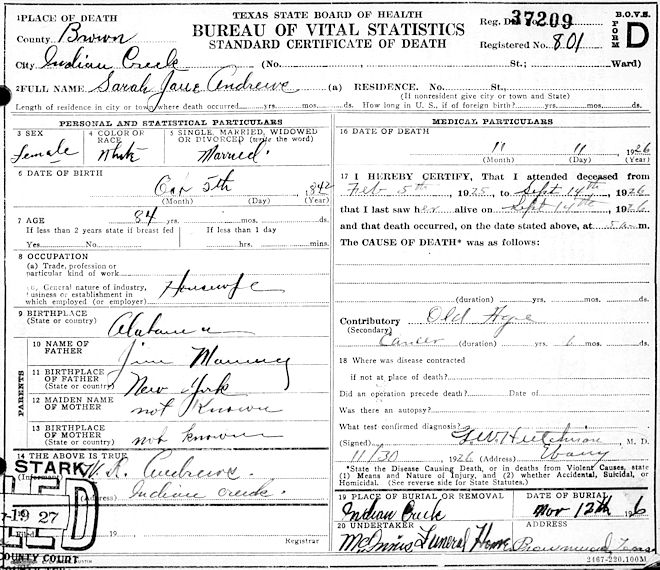 TEXAS STATE BOARD OF HEALTH
BUREAU OF VITAL STATISTICS
STANDARD CERTIFICATE OF DEATH
Reg. Dis. 37209
Registered No. 801
B.O.V.S.
FORM D
1 PLACE OF DEATH
County Brown
City Indian Creek (No. St.; Ward)
2 FULL NAME Sarah Jane Andrews (a) RESIDENCE. No. St.,
(If nonresident give city or town and State)
Length of residence in city or town where death occurred yrs. mos. ds. How long in U. S., if of foreign birth? yrs. mos. ds.
PERSONAL AND STATISTICAL PARTICULARS
3 SEX
Female
4 COLOR OR RACE
White
5 SINGLE, MARRIED, WIDOWED OR DIVORCED (write the word)
Married
6 DATE OF BIRTH
5th 1842
(Month) (Day) (Year)
7 AGE 84 yrs. mos. ds.
If less than 2 years state if breast fed
Yes No
If less than 1 day
hrs. mins.
8 OCCUPATION
(a) Trade, profession or
particular kind of work
General nature of industry,
business or establishment in
which employed (or employer)
Housewife
9 BIRTHPLACE
(State or country) Alabama
PARENTS
10 NAME OF FATHER Jim
11 BIRTHPLACE OF FATHER (State or country) New York
12 MAIDEN NAME OF MOTHER not Known
13 BIRTHPLACE OF MOTHER not known
14 THE ABOVE IS TRUE
(Informant) Andrews
(Address) Indian Creek
STARK
1927
Filed 19
Registrar
COUNTY COURT
MEDICAL PARTICULARS
16 DATE OF DEATH
11 11 1926
(Month) (Day) (Year)
17 I HEREBY CERTIFY, That I attended deceased from
Feb 5th, 1925, to Sept 14th, 1926
that I last saw her alive on Sept 14th, 1926
and that death occurred, on the date stated above, at 5 a m.
The CAUSE OF DEATH* was as follows:
(duration) yrs. mos. ds.
Contributory Old Age
(Secondary)
Cancer (duration) yrs. 6 mos. ds.
18 Where was disease contracted
if not at place of death?
Did an operation precede death? Date of
Was there an autopsy?
What test confirmed diagnosis?
(Signed) Hutchison, M. D.
11/30 1926 (Address) Ebony
*State the Disease Causing Death, or in deaths from Violent Causes, state
(1) Means and Nature of Injury, and (2) whether Accidental, Suicidal, or
Homicidal. (See reverse side for State Statutes.)
19 PLACE OF BURIAL OR REMOVAL
Indian Creek
DATE OF BURIAL
Nov 12th 1926
20 UNDERTAKER
McInnis Funeral Home
ADDRESS
Brownwood, Texas
2467-220.100M